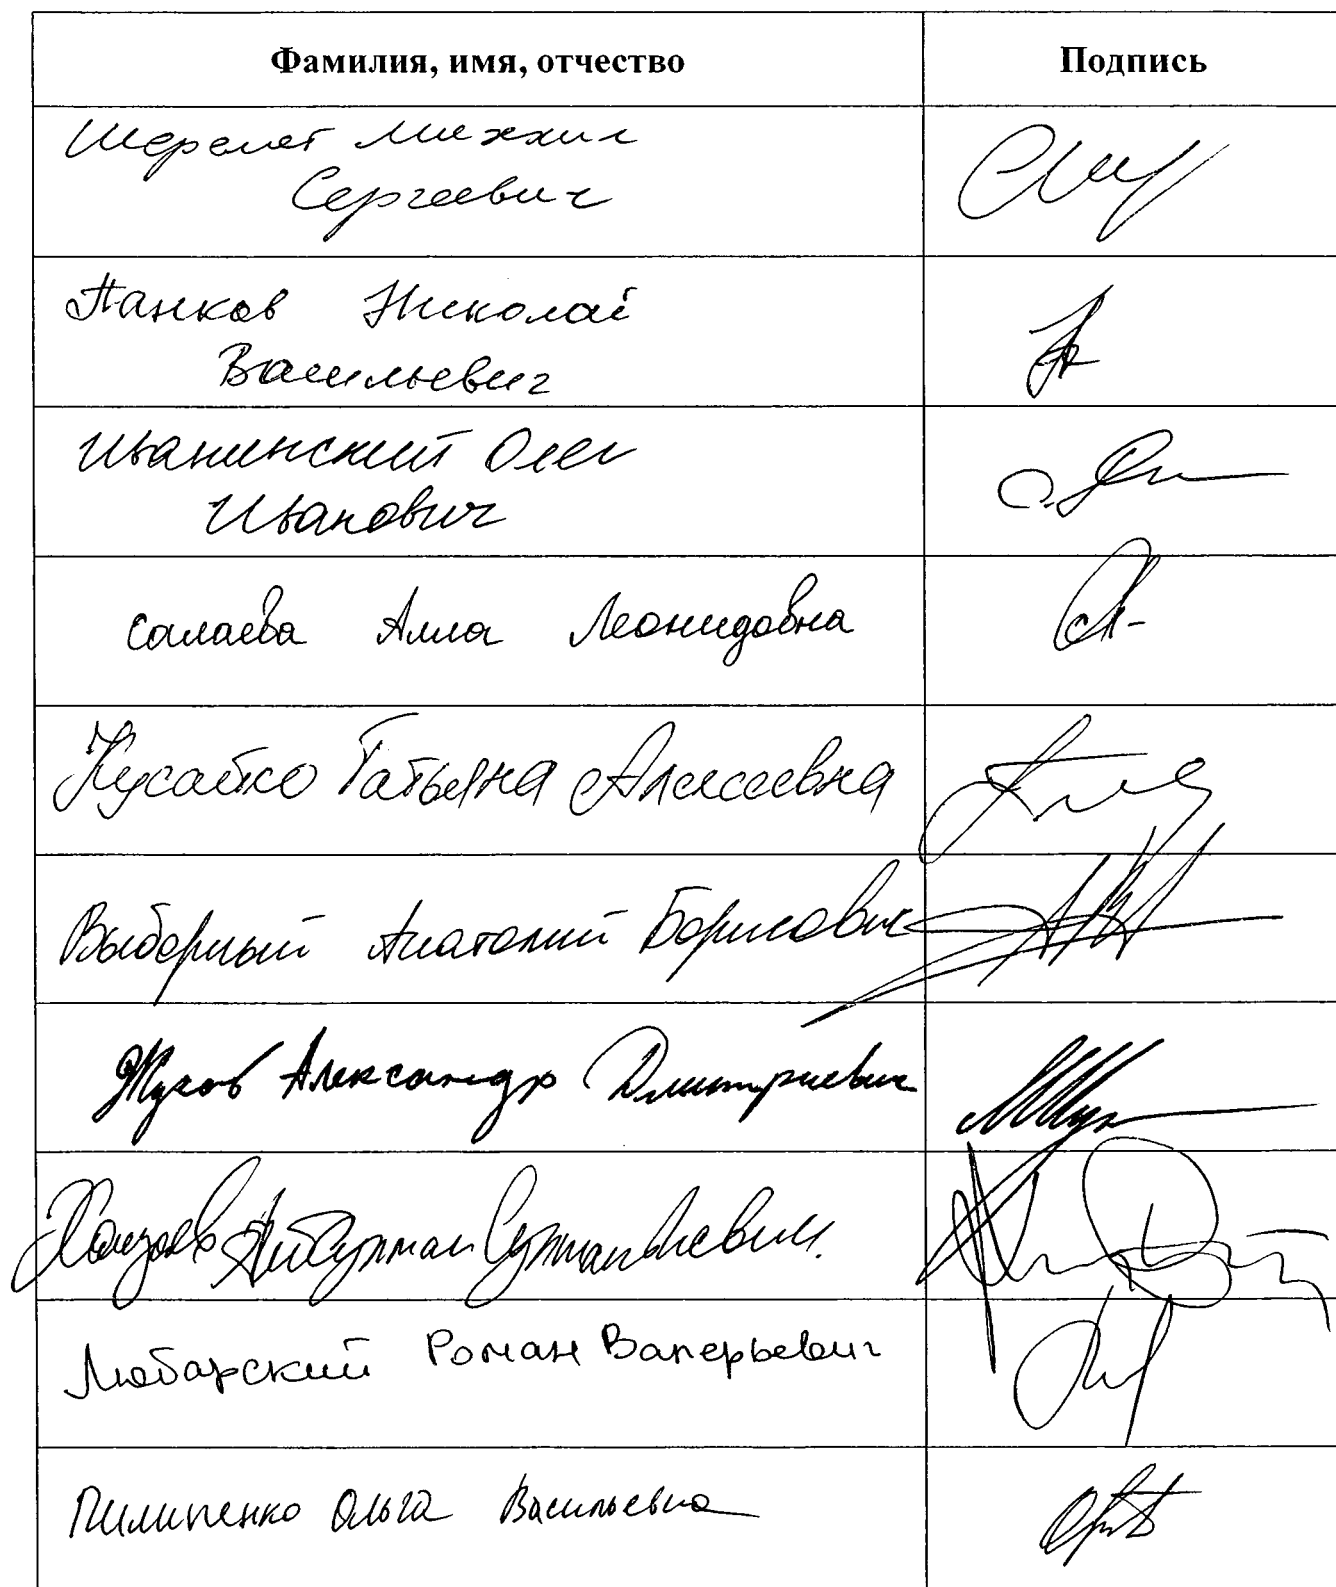 Фамилия, имя, отчество
Подпись
Шеремет Михаил
Сергеевич
Панков Николай
Васильевич
Иванинский Олег
Иванович
Салаева Алла Леонидовна
Кусайко Татьяна Алексеевна
Выборный Анатолий Борисович
Жуков Александр Дмитриевич
Хамзаев Султан
Любарский Роман Валерьевич
Пилипенко Ольга Васильевна